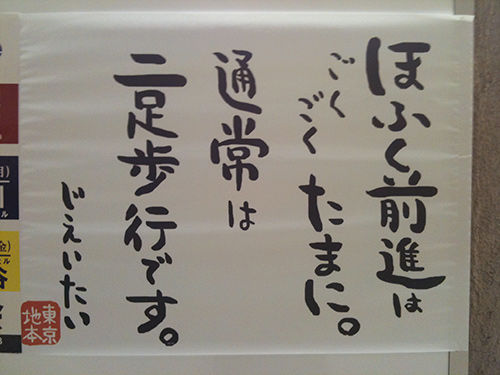 ほふく前進は
ごくごくたまに。
通常は
二足歩行です。
じえいたい
東京
地本